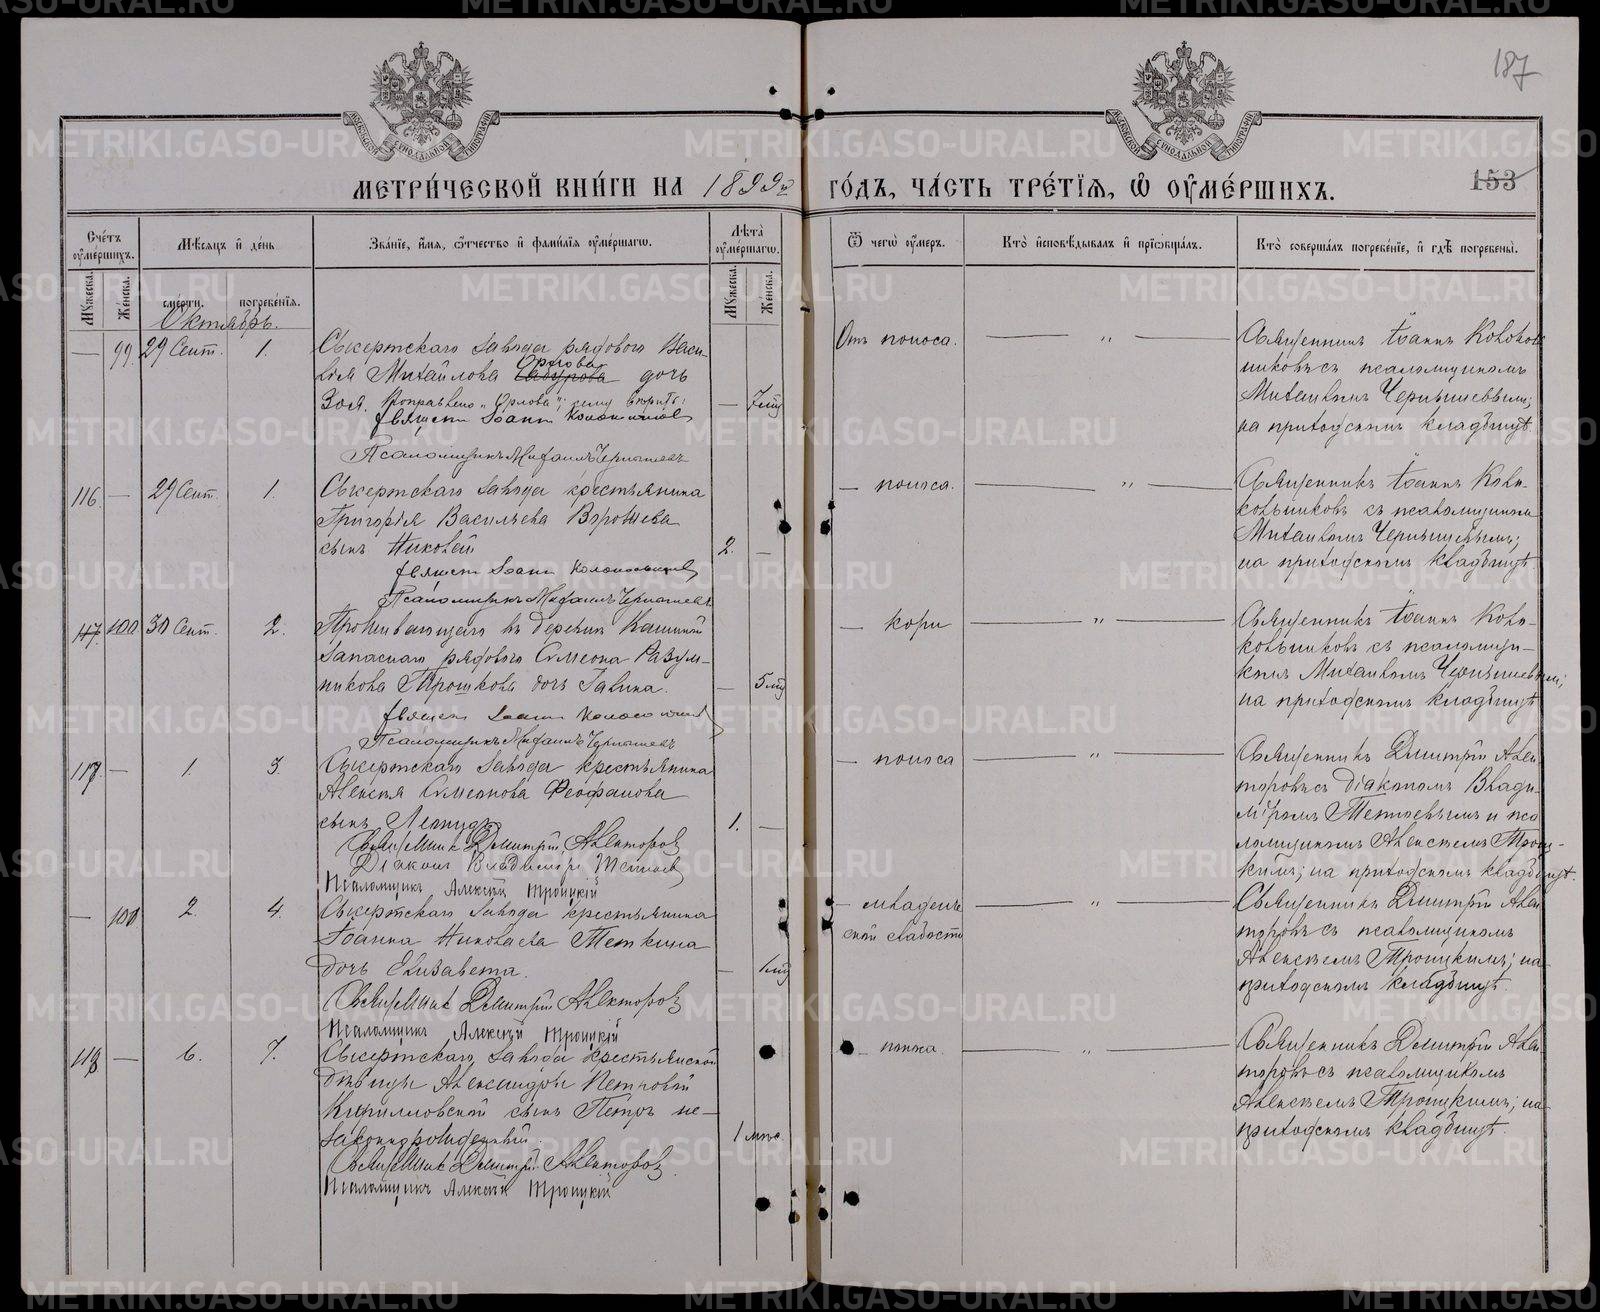 187
МЕТРИ́ЧЕСКОЙ КНИ́ГИ НА 1899й ГО́ДЪ, ЧА́СТЬ ТРЕ́ТІѦ, Ѡ҆ ОУ҆МЕ́РШИХЪ.
153
МОСКОВСКОЙ СѴНОДАЛЬНОЙ ТИПОГРАФІИ
МОСКОВСКОЙ СѴНОДАЛЬНОЙ ТИПОГРАФІИ
Сче́тъ оу҆ме́ршихъ.
Мѣ́сѧцъ и҆ де́нь
Зва́нїе, и҆́мѧ, ѻ҆́тчество и҆ фами́лїѧ оу҆ме́ршагѡ.
Лѣ́та оу҆ме́ршагѡ.
Ѿ чегѡ̀ оу҆́меръ.
Кто̀ и҆сповѣ́дывалъ и҆ прїѡбща́лъ.
Кто̀ соверша́лъ погребе́нїе, и҆ гдѣ̀ погребены̀.
Мꙋ́жеска. Же́нска. сме́рти. погребе́нїѧ. Мꙋ́жеска. Же́нска.
Октябрь.
— 99. 29 Сент. 1.
Сысертскаго завода рядового Васи-
лія Михайлова Орлова
дочь
Зоя. Поправлено „Орлова“; сему вѣрить:
Священ. Іоаннъ Колокольниковъ
Псаломщикъ Михаилъ Чернышевъ
— 7 мѣс
Отъ поноса. — „ —
Священникъ Іоаннъ Коколь
никовъ съ псаломщикомъ
Михаиломъ Чернышевымъ;
на приходскомъ кладбищѣ
116 — 29 Сент. 1.
Сысертскаго завода крестьянина
Григорія Васильева
сынъ Николай
Священ. Іоаннъ Колокольниковъ
Псаломщикъ Михаилъ Чернышевъ
2. —
— поноса. — „ —
Священникъ Іоаннъ Коло-
кольниковъ съ псаломщикомъ
Михаиломъ Чернышевымъ;
на приходскомъ кладбищѣ
117. 100 30 Сент. 2.
Проживающаго въ деревнѣ Кашиной
запаснаго рядового Симеона Разум-
никова Трошкова дочь Галина.
Священ. Іоаннъ Колокольниковъ
Псаломщикъ Михаилъ Чернышевъ
— 5 мѣс
— кори — „ —
Священникъ Іоаннъ Коло-
кольниковъ съ псаломщи-
комъ Михаиломъ Чернышевымъ;
на приходскомъ кладбищѣ
117. — 1. 3.
Сысертскаго завода крестьянина
Алексія Симеонова Феофанова
сынъ Леонидъ
Священникъ Димитрій Алекторовъ
Діаконъ Владиміръ Тетюевъ
Псаломщикъ Алексѣй Троицкій
1. —
— поноса — „ —
Священникъ Димитрій Алек
торовъ съ діакономъ Влади-
міромъ Тетюевымъ и пса
ломщикомъ Алексѣемъ Трои-
кимъ; на приходскомъ кладбищѣ.
— 100 2. 4.
Сысертскаго завода крестьянина
Іоанна Николаева Теткина
дочь Елизавета.
Священникъ Димитрій Алекторовъ
Псаломщикъ Алексѣй Троицкій
— 1 мѣс
— младенче
ской слабости — „ —
Священникъ Димитрій Алек
торовъ съ псаломщикомъ
Алексѣемъ Троицкимъ; на
приходскомъ кладбищѣ.
118 — 6. 7.
Сысертскаго завода крестьянской
дѣвицы Александры Петровой
Кирилловской сынъ Петръ не-
законнорожденный.
Священникъ Димитрій Алекторовъ.
Псаломщикъ Алексѣй Троицкій
1 мѣс.
— поноса. — „ —
Священникъ Димитрій Алек
торовъ съ псаломщикомъ
Алексѣемъ Троицкимъ; на
приходскомъ кладбищѣ.
METRIKI.GASO-URAL.RU